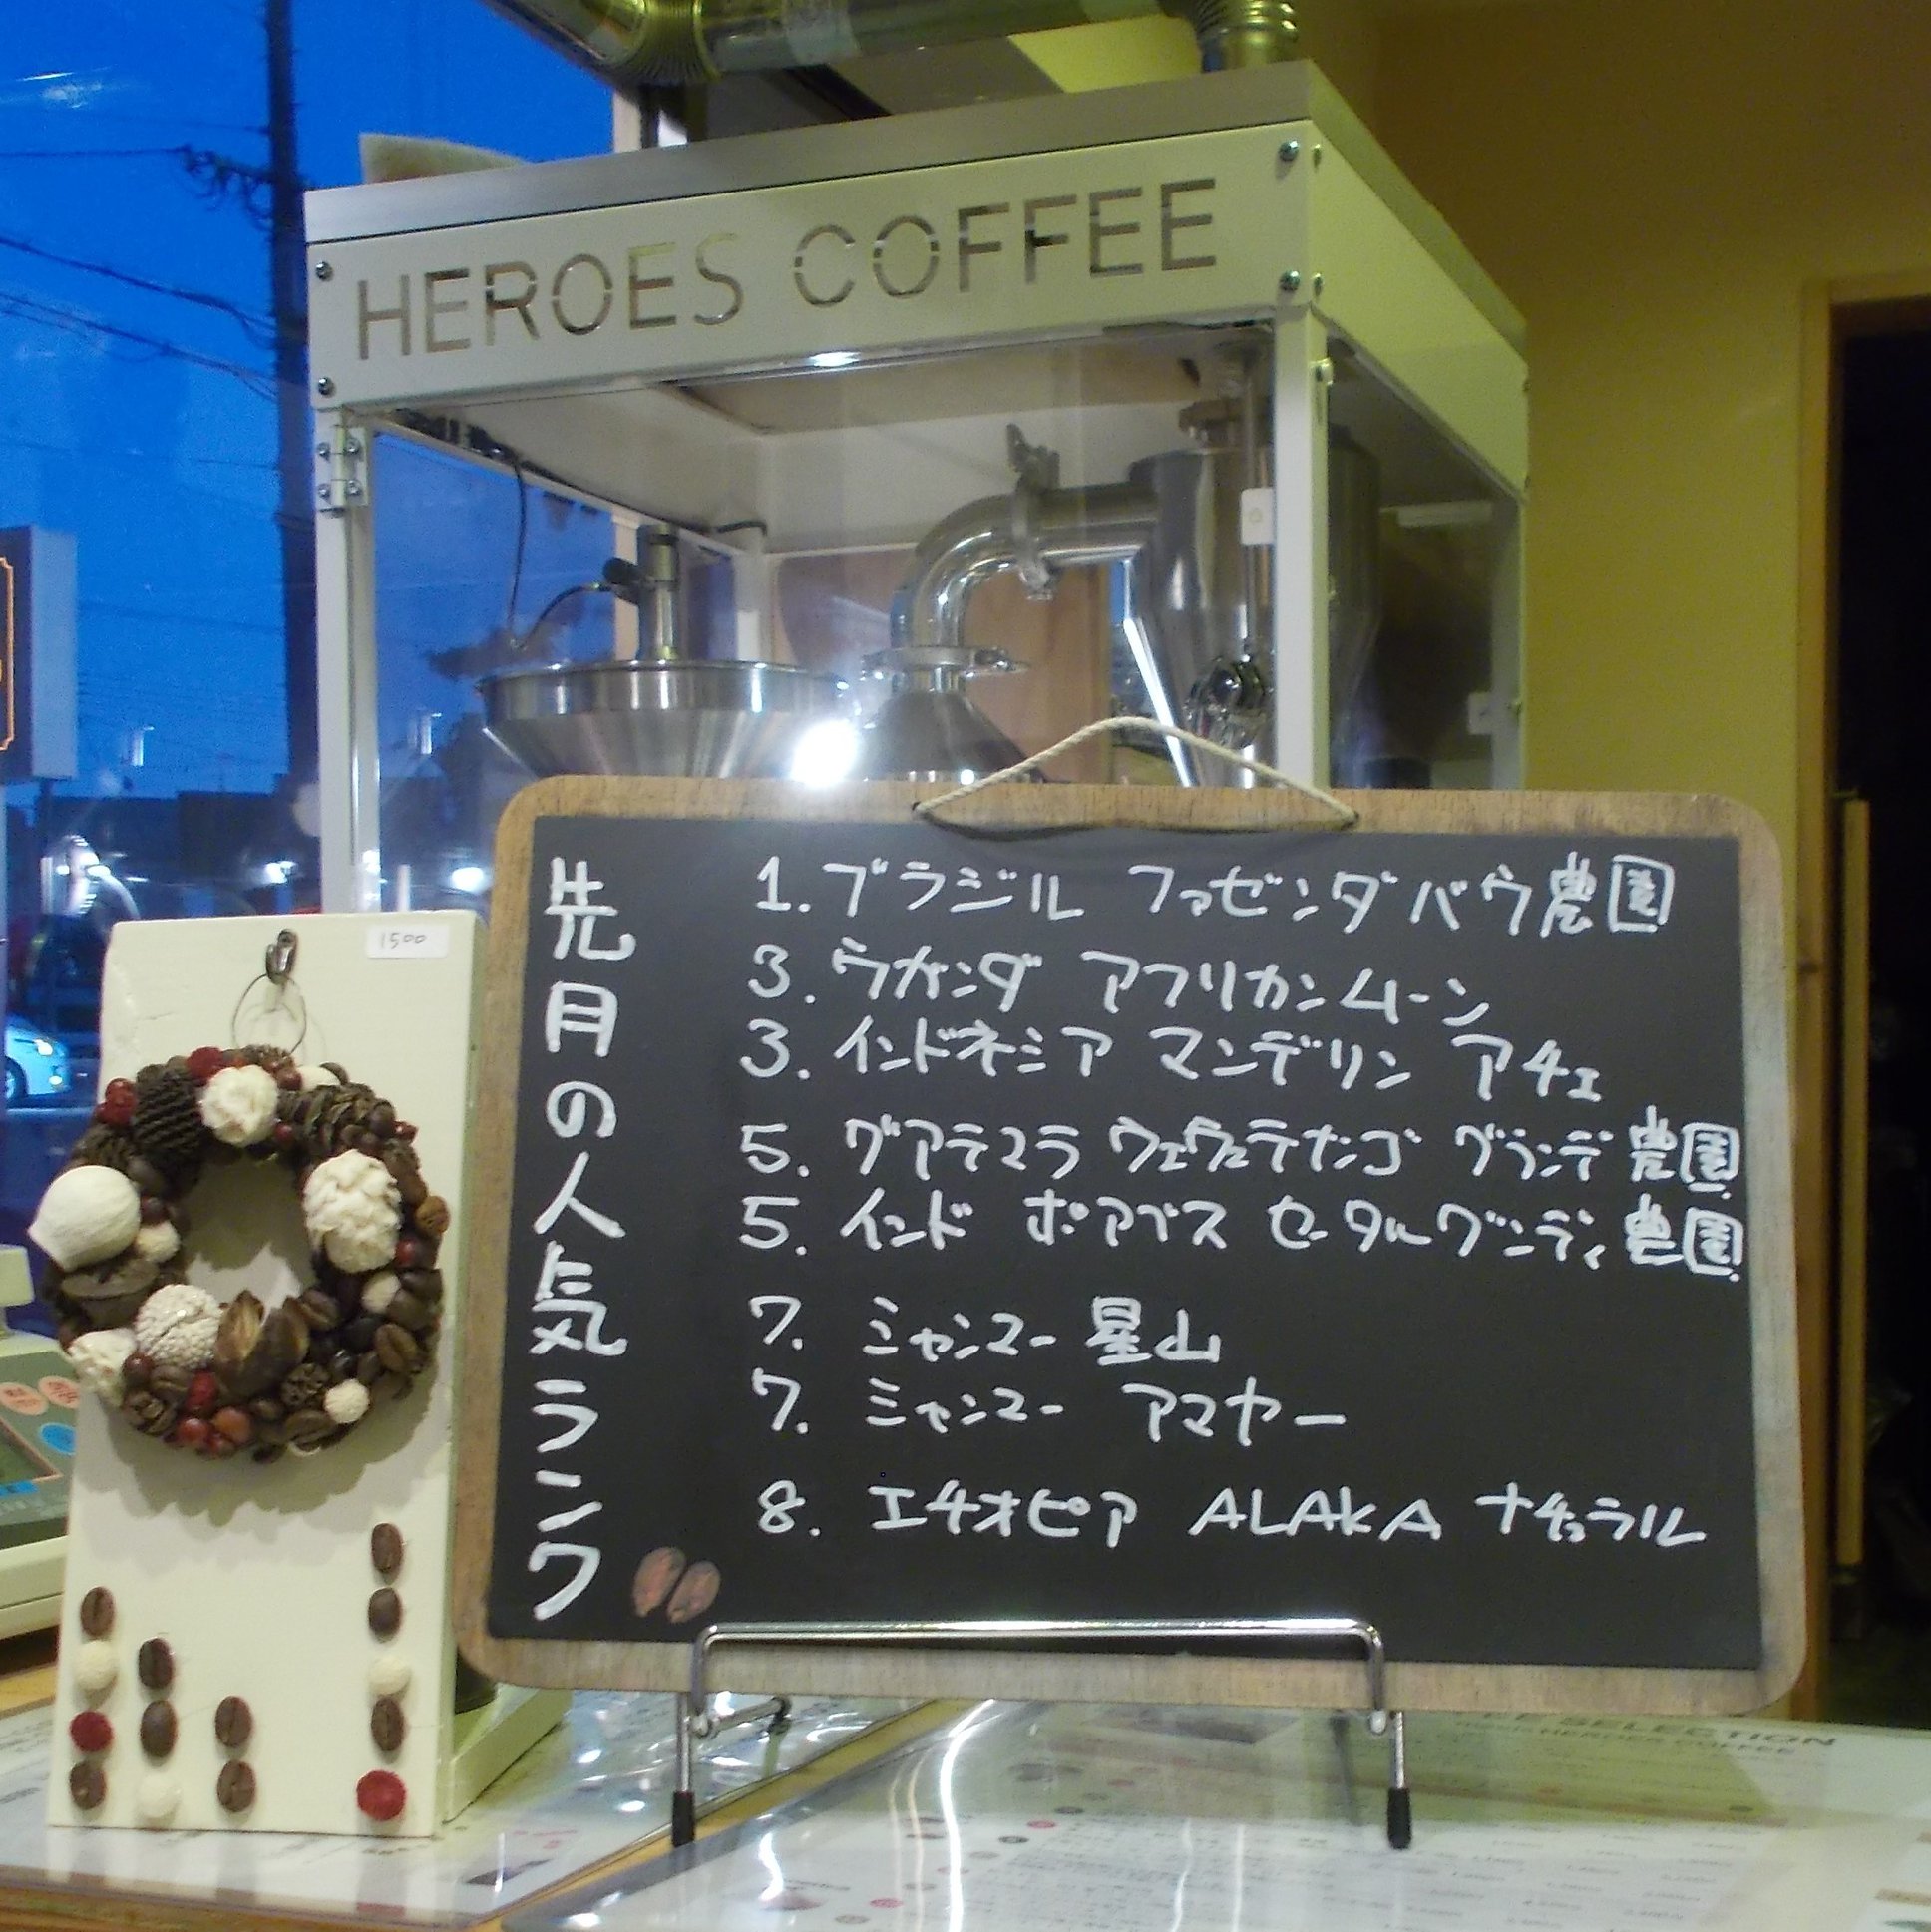 HEROES COFFEE
1500
先月の人気ランク
1. ブラジル ファゼンダバウ農園
3. ウガンダ アフリカンムーン
3. インドネシア マンデリン アチェ
5. グアテマラ ウェウェテナンゴ グランデ農園
5. インド ポアブス セータルグンディ農園
7. ミャンマー 星山
7. ミャンマー アマヤー
8. エチオピア ALAKA ナチュラル
SELECTION
HEROES COFFEE